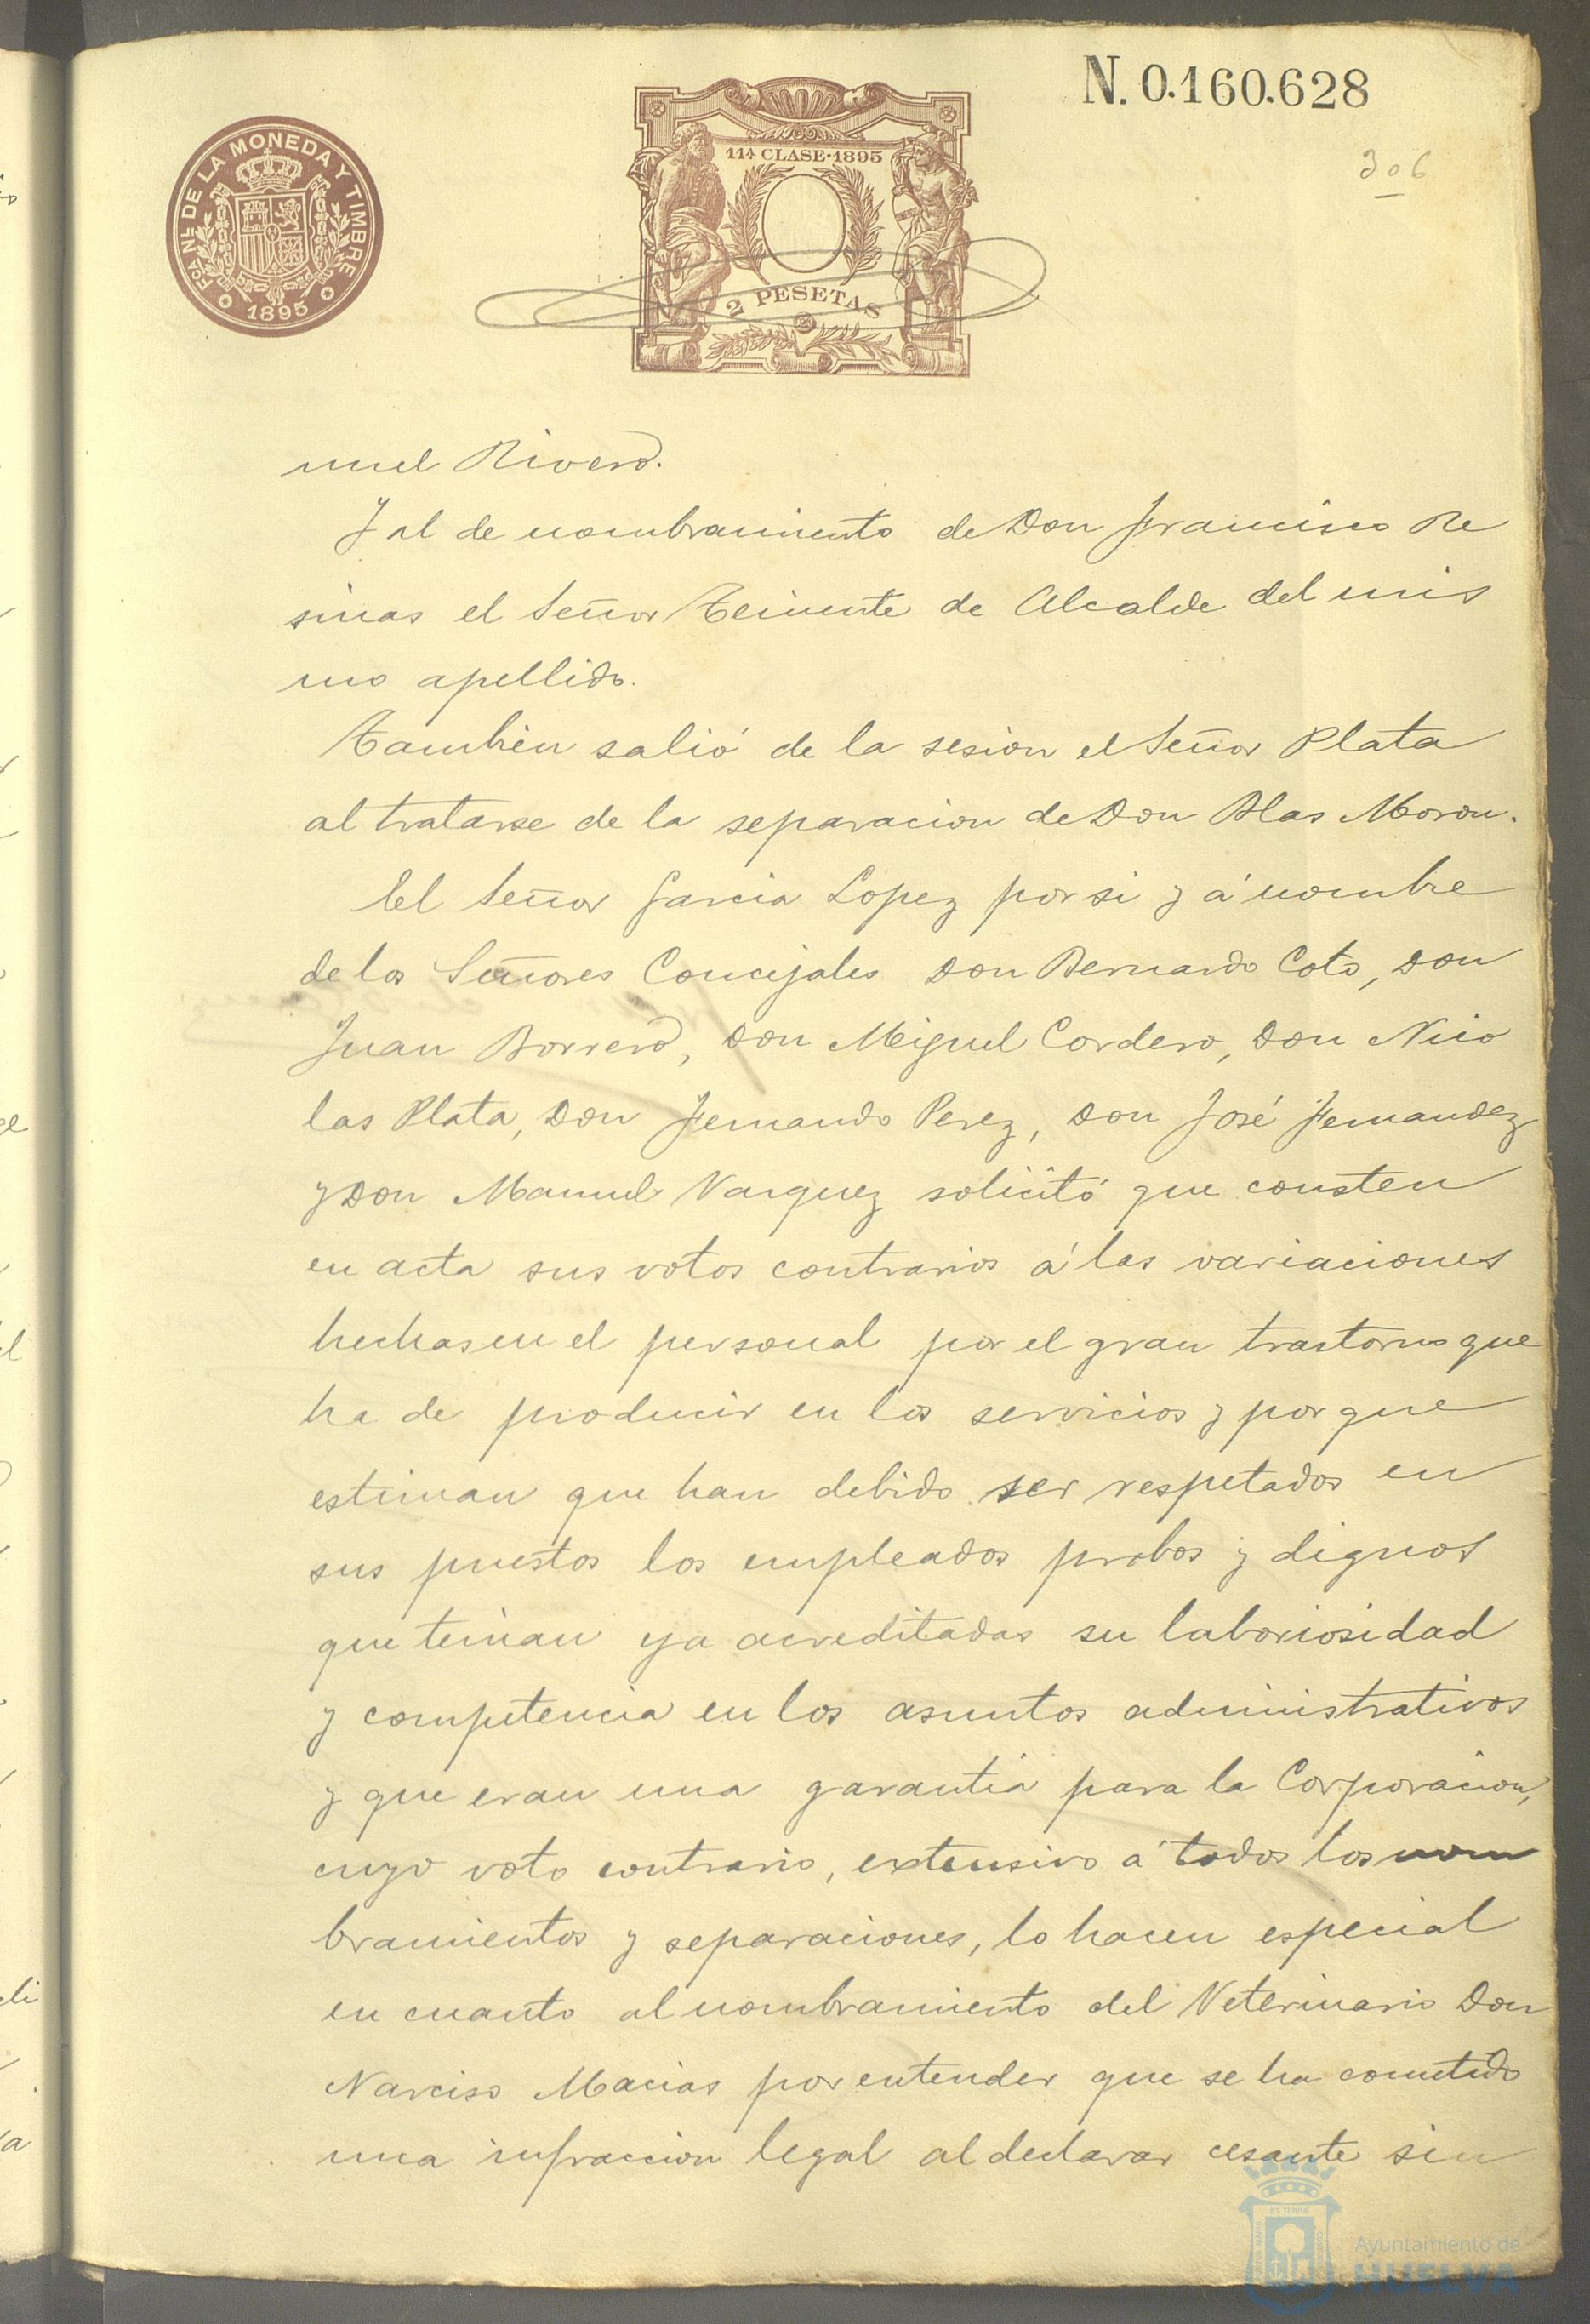 N. 0.160.628
306
FCA NL DE LA MONEDA Y TIMBRE
1895
11ª CLASE·1895
2 PESETAS
nuel Rivero.
Y al de nombramiento de Don Francisco Re
sinas el Señor Teniente de Alcalde del mis
mo apellido.
Tambien salió de la sesion el Señor Plata
al tratarse de la separacion de Don Blas Moron.
El Señor Garcia Lopez por si y á nombre
de los Señores Concejales Don Bernardo Coto, Don
Juan Borrero, Don Miguel Cordero, Don Nico
las Plata, Don Fernando Perez, Don José Fernandez
y Don Manuel Vazquez solicitó que consten
en acta sus votos contrarios á las variaciones
hechas en el personal por el gran trastorno que
ha de producir en los servicios y por que
estiman que han debido ser respetados en
sus puestos los empleados probos y dignos
que tenian ya acreditadas su laboriosidad
y competencia en los asuntos administrativos
y que eran una garantia para la Corporacion,
cuyo voto contrario, extensivo á todos los nom
bramientos y separaciones, lo hacen especial
en cuanto al nombramiento del Veterinario Don
Narciso Macias por entender que se ha cometido
una infraccion legal al declarar cesante sin
Ayuntamiento de
HUELVA